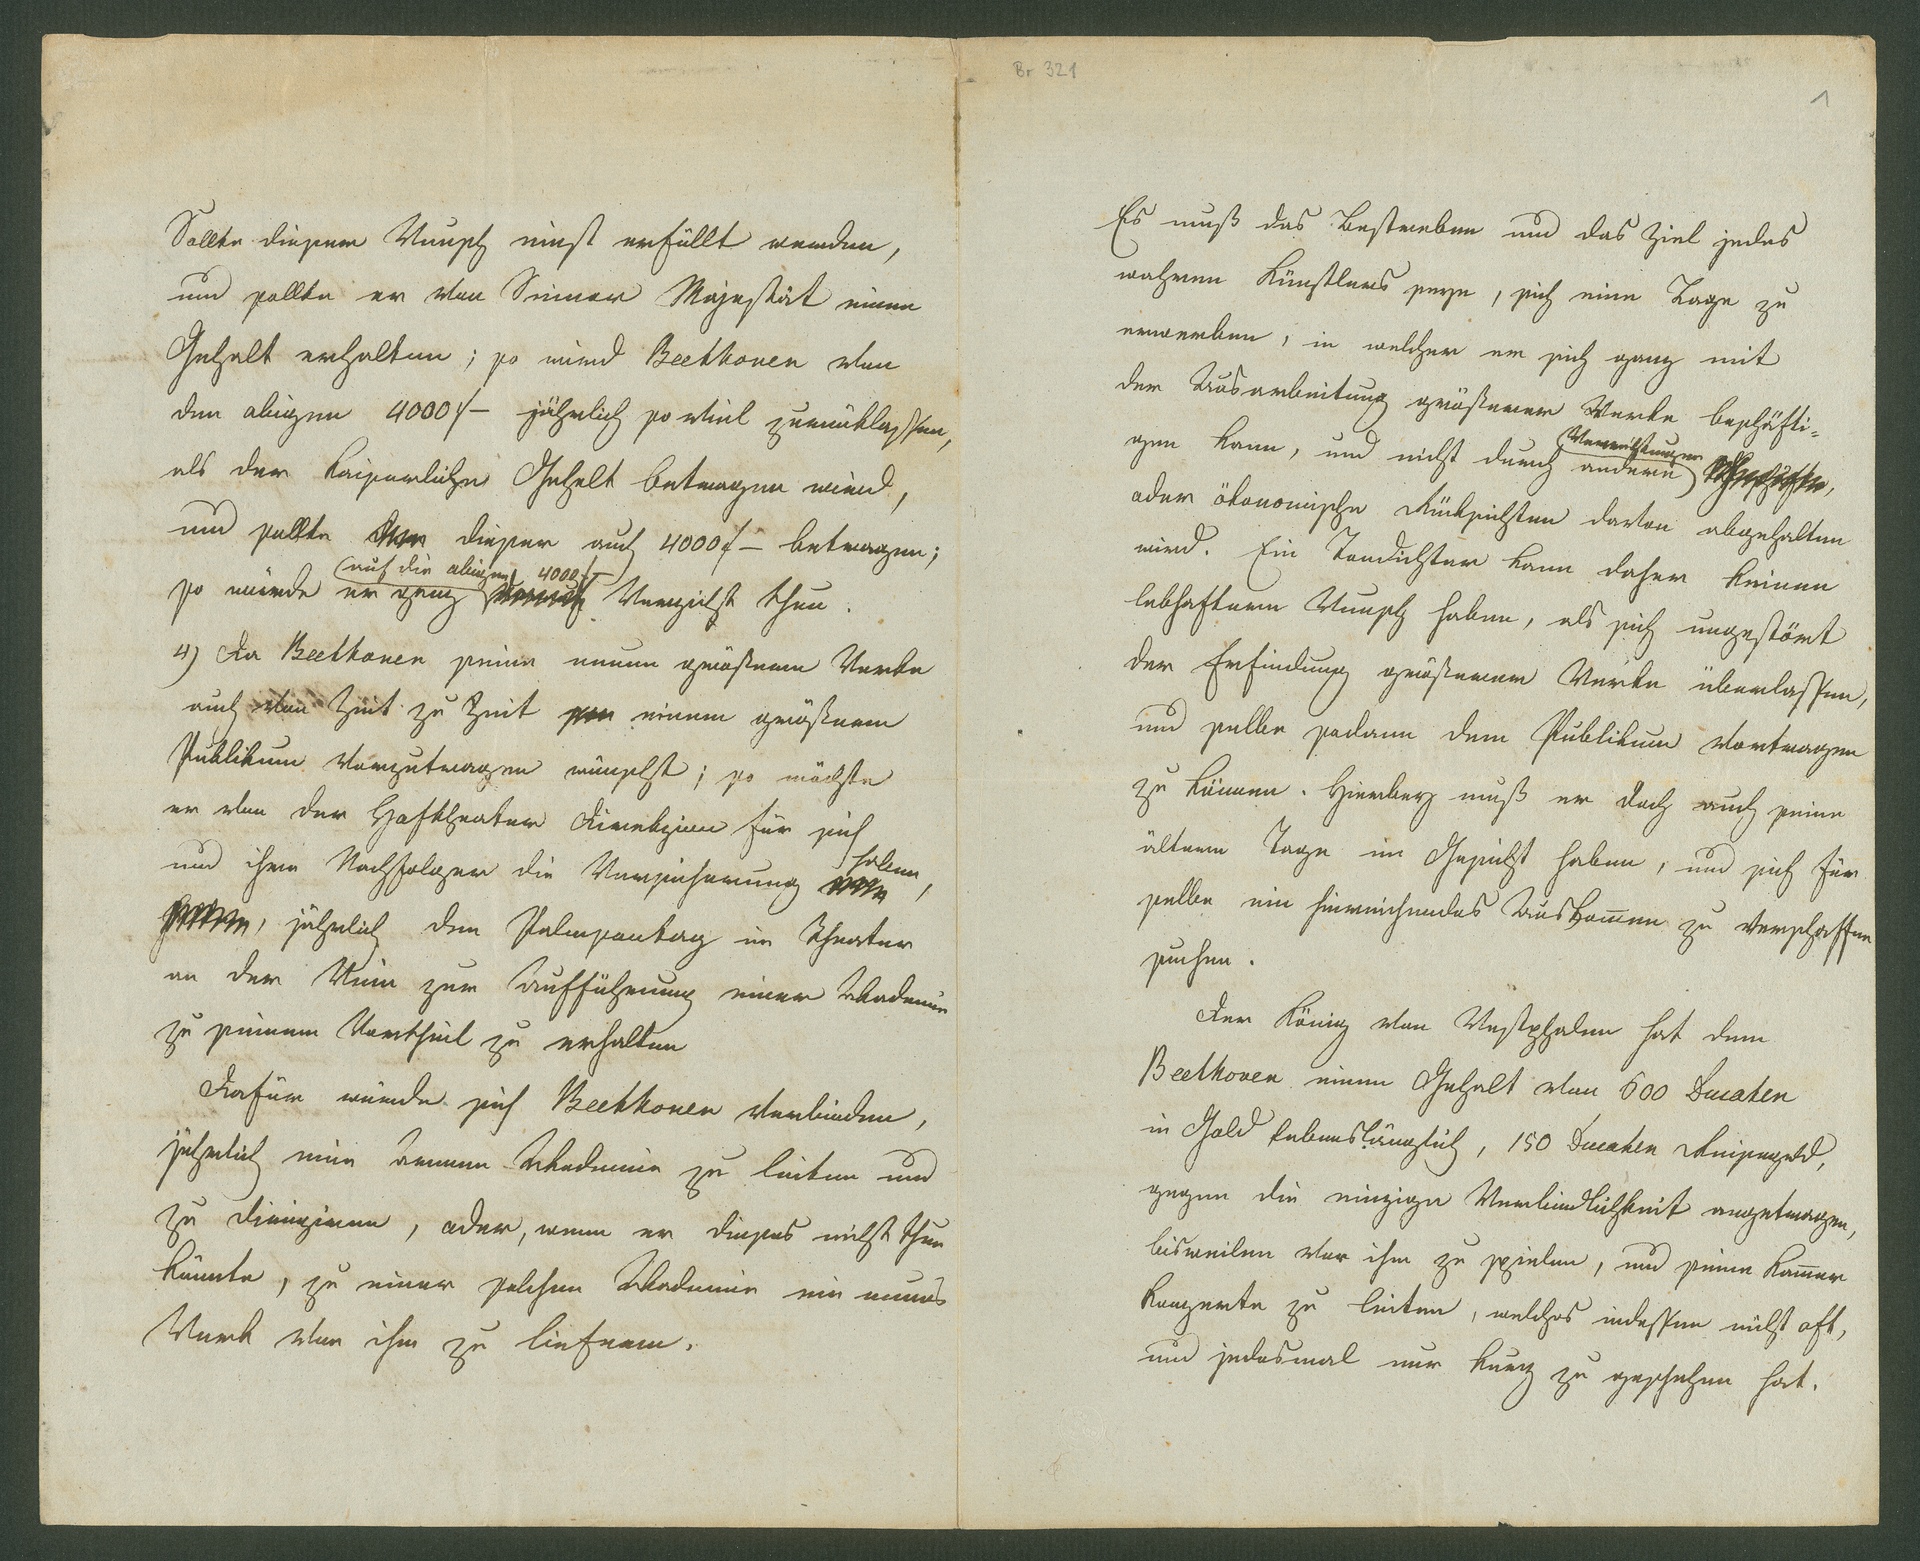 Sollte dieser Wunsch einst erfüllt werden,
und sollte er von Seiner Majestät einen
Gehalt erhalten; so wird Beethoven von
den obigen 4000 f – jährlich so viel zurücklassen,
als der kaiserliche Gehalt betragen wird,
und sollte dieser auch 4000 f – betragen;
auf die obigen 4000 f –
so würde er ganz Verzicht thun.
4) Da Beethoven seine neuen größern Werke
auch von Zeit zu Zeit einem größern
Publikum vorzutragen wünscht; so möchte
er von der Hoftheater Direkzion für sich
haben,
und ihre Nachfolger die Versicherung
jährlich den Palmsontag im Theater
an der Wien zur Aufführung einer Akademie
zu seinem Vortheil zu erhalten
Dafür würde sich Beethoven verbinden,
jährlich eine Armen Akademie zu leiten und
zu dirigiren, oder, wenn er dieses nicht thun
könnte, zu einer solchen Akademie ein neues
Werk von ihm zu liefern.
Br 321
1
Es muß das Bestreben und das Ziel jedes
wahren Künstlers seyn, sich eine Lage zu
erwerben, in welcher er sich ganz mit
der Ausarbeitung größerer Werke beschäfti=
Verrichtungen
gen kann, und nicht durch andere
oder ökonomische Rücksichten davon abgehalten
wird. Ein Tondichter kann daher keinen
lebhaftern Wunsch haben, als sich ungestört
der Erfindung größerer Werke überlassen,
und selbe sodann dem Publikum vortragen
zu können. Hierbey muß er doch auch seine
ältern Tage im Gesicht haben, und sich für
selbe ein hinreichendes Auskom̅en zu verschaffen
suchen.
Der König von Westphalen hat dem
Beethoven einen Gehalt von 600 Ducaten
in Gold lebenslänglich, 150 Ducaten Reisegeld,
gegen die einzige Verbindlichkeit angetragen,
bisweilen vor ihm zu spielen, und seine Kam̅er
Konzerte zu leiten, welches indessen nicht oft,
und jedesmal nur kurz zu geschehen hat.